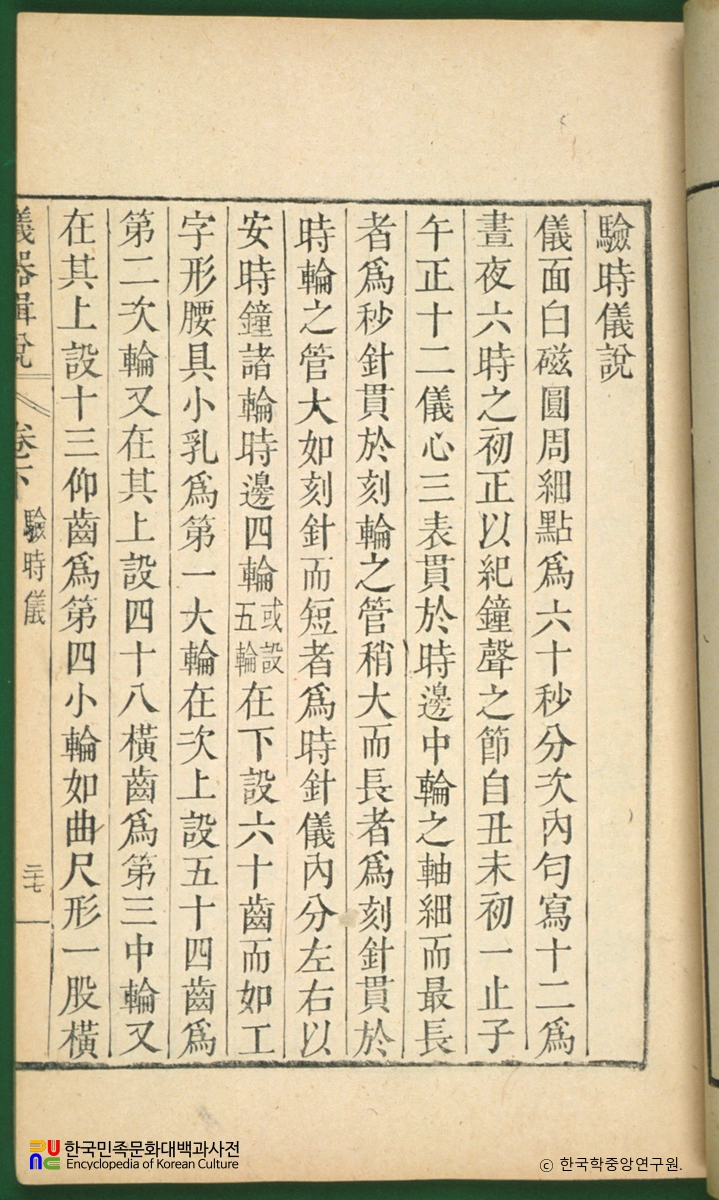 驗時儀說
儀面白磁圓周細點爲六十秒分次內勻寫十二爲
晝夜六時之初正以紀鐘聲之節自丑未初一止子
午正十二儀心三表貫於時邊中輪之軸細而最長
者爲秒針貫於刻輪之管稍大而長者爲刻針貫於
時輪之管大如刻針而短者爲時針儀內分左右以
安時鐘諸輪時邊四輪或設五輪在下設六十齒而如工
字形腰具小乳爲第一大輪在次上設五十四齒爲
第二次輪又在其上設四十八橫齒爲第三中輪又
在其上設十三仰齒爲第四小輪如曲尺形一股橫
儀器輯說 卷下 驗時儀 二十七
한국민족문화대백과사전
Encyclopedia of Korean Culture
© 한국학중앙연구원.